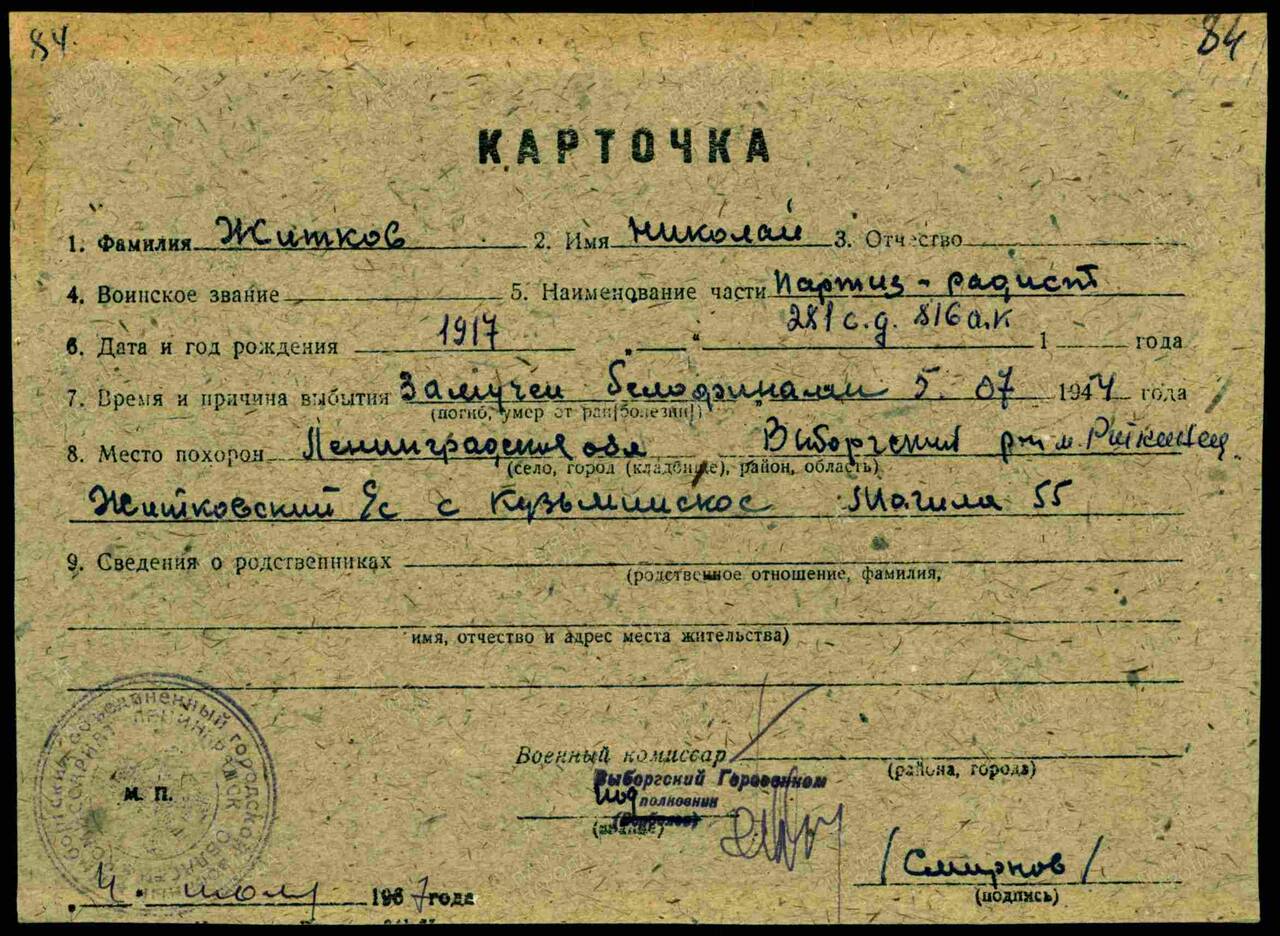 84. 84
КАРТОЧКА
1. Фамилия Житков 2. Имя Николай 3. Отчество
4. Воинское звание 5. Наименование части Партиз - радист
281 с.д. 816 а.к
6. Дата и год рождения 1917 „ “ 1 года
7. Время и причина выбытия Замучен белофинами 5. 07 1944 года
(погиб, умер от ран[болезни])
8. Место похорон Ленинградская обл Выборгский р-н м.
(село, город (кладбище), район, область)
Житковский с Кузьминское Могила 55
9. Сведения о родственниках
(родственное отношение, фамилия,
имя, отчество и адрес места жительства)
Военный комиссар
(района, города)
Выборгский Горвоенком
М. П.
подполковник
(звание)
/Смирнов/
(подпись)
4. июля 1967 года